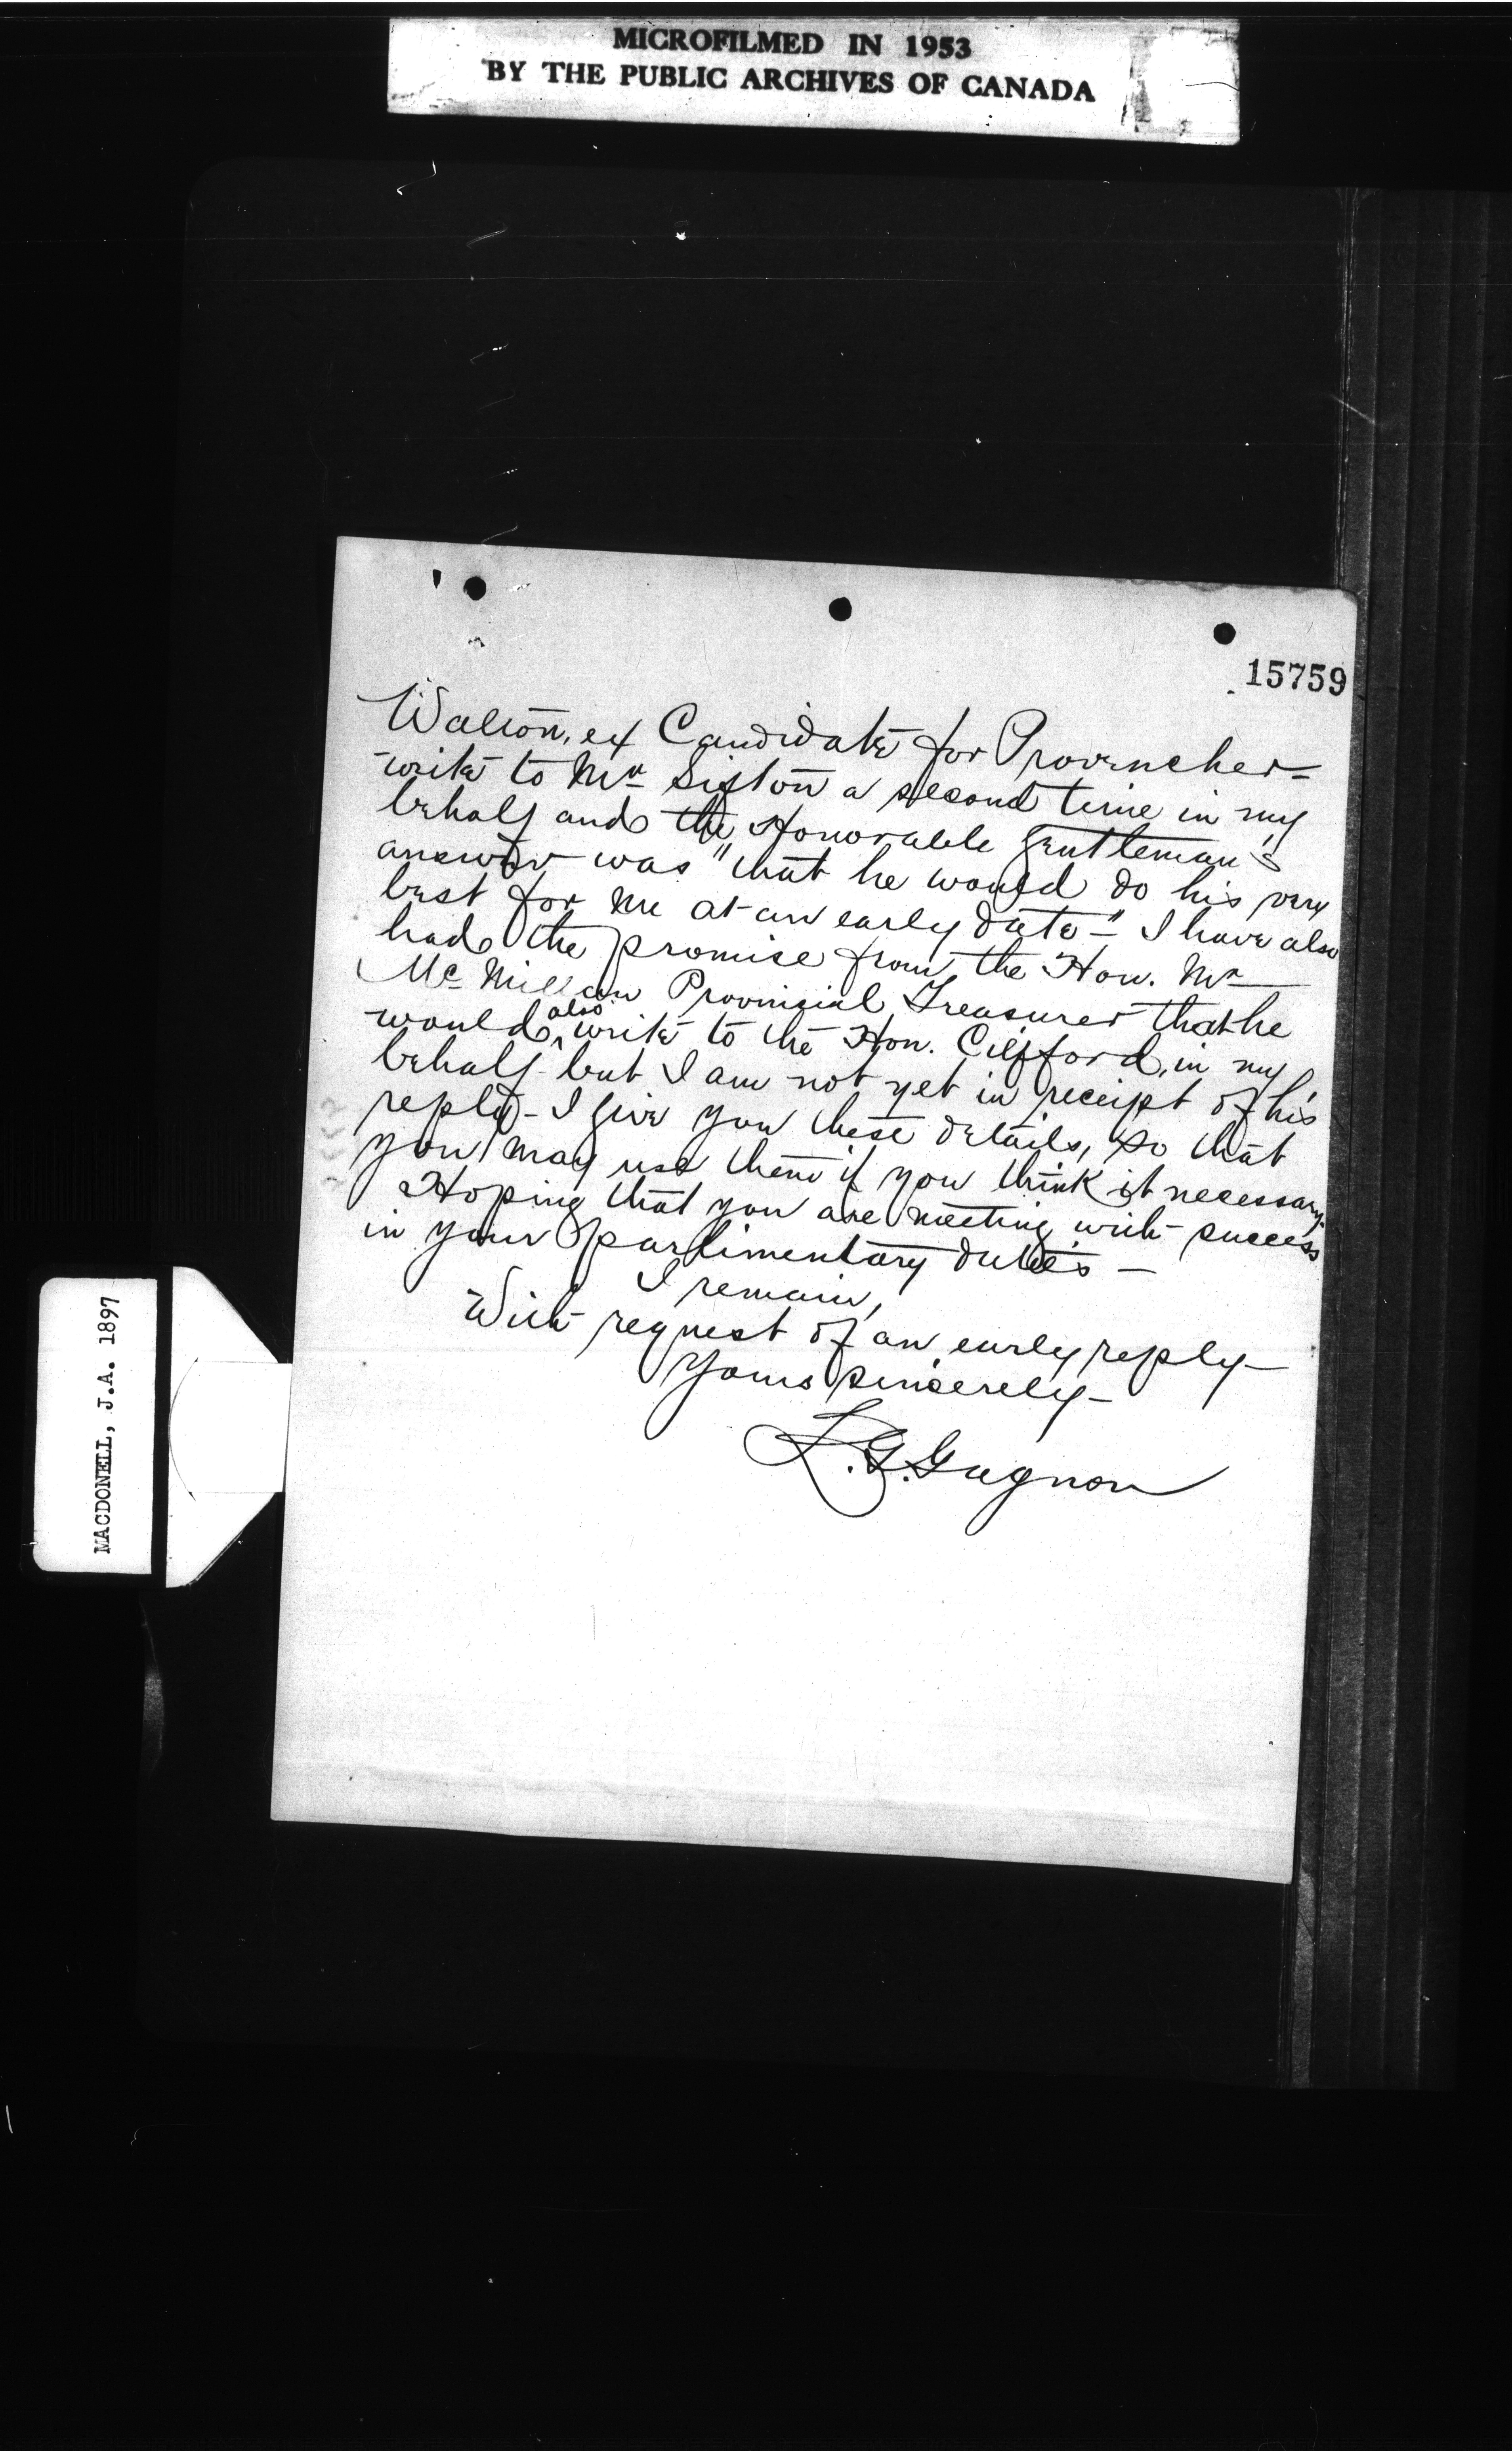 MICROFILMED IN 1953
BY THE PUBLIC ARCHIVES OF CANADA
15759
Walton, ex Candidate for Provencher –
write to Mr Sifton a second time in my
behalf and the Honorable Gentleman's
answer was "that he would do his very
best for me at an early date –" I have also
had the promise from the Hon. Mr
McMillan Provincial Treasurer that he
would also write to the Hon. Clifford, in my
behalf – but I am not yet in receipt of his
reply – I give you these details, so that
you may use them if you think it necessary.
Hoping that you are meeting with success
in your parlimentary duties –
I remain,
With request of an early reply –
Yours sincerely –
L. G. Gagnon
MACDONELL, J.A. 1897